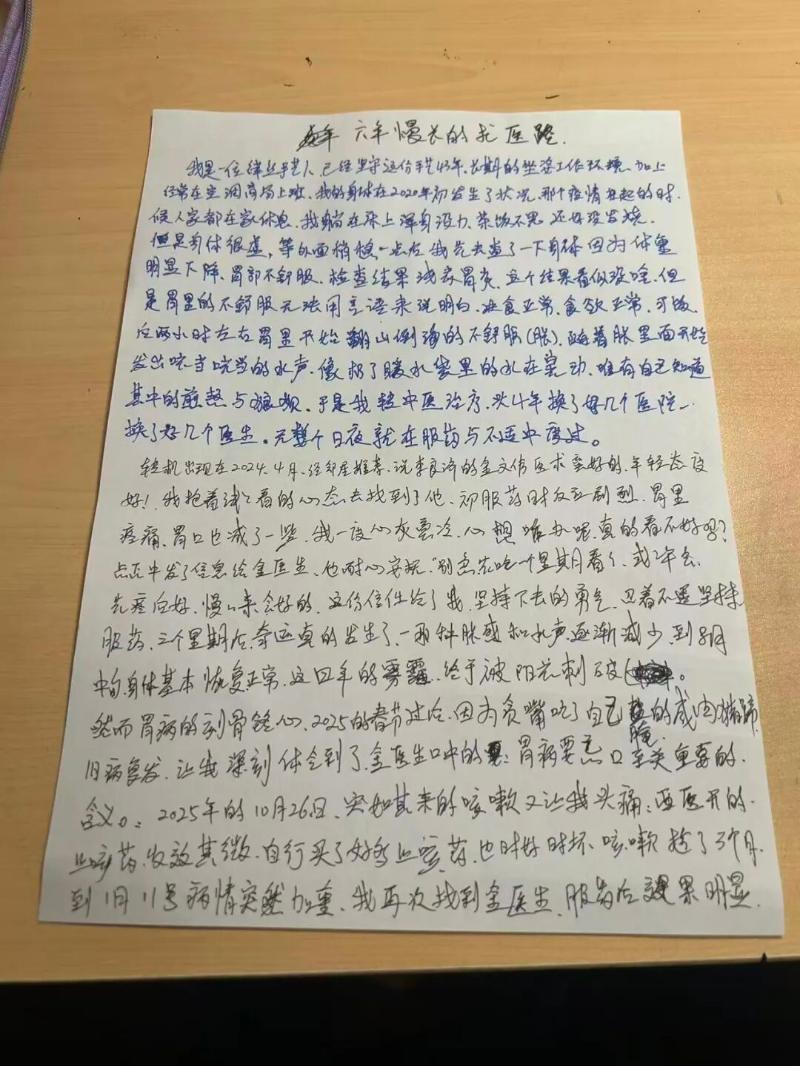 六年慢长的求医路.
我是一位缝纫手艺人,已经坚守这份手艺43年.长期的坐姿工作环境.加上
经常在空调商场上班.我的身体在2020年初发生了状况.那个疫情在起的时
候人家都在家休息.我躺在床上浑身没力.茶饭不思 还好没发烧.
但是身体很虚,等外面稍稳一点后我先去查了一下身体 因为体重
明显下降、胃部不舒服.检查结果浅表胃炎.这个结果看似没啥.但
是胃里的不舒服无法用言语来说明白.进食正常.食欲正常.可饭
后两小时左右胃里开始翻山倒海的不舒服(胀).随着胀里面开始
发出咣当咣当的水声.像极了暖水袋里的水在晃动.唯有自己知道
其中的煎熬与狼狈.于是我转中医治疗.头4年换了好几个医院、
换了好几个医生.无数个日夜就在服药与不适中度过。
转机出现在2024.4月.经邻居推荐.说李良济的金文伟医术蛮好的.年轻态度
好!我抱着试试看的心态去找到了他.初服药时反应剧烈.胃里
疼痛.胃口也减了一些.我一度心灰意冷.心想咋办呢.真的看不好吗?
忐忑中发了信息给金医生.他耐心安抚."别急先吃一个星期看看.
先痊后好.慢慢来会好的.这份信任给了我.坚持下去的勇气.忍着不适坚持
服药.三个星期后.奇迹真的发生了.胀感和水声逐渐减少.到8月
中旬身体基本恢复正常.这四年的雾霾.终于被阳光刺破。
然而胃病的刻骨铭心.2025的春节过后.因为贪嘴吃了自己腌的咸肉猪蹄
旧病复发.让我深刻体会到了金医生口中的:胃病要忌口至关重要的.
含义。2025年的10月26日.突如其来的咳嗽又让我头痛:西医开的.
止咳药.收效甚微.自行买了好多止咳药.也时好时坏.咳嗽拖了3个月.
到1月11号病情突然加重.我再次找到金医生.服药后效果明显.